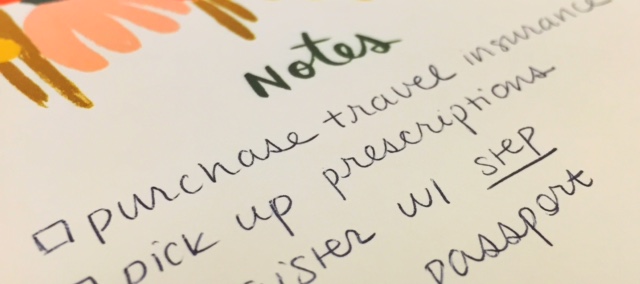 Notes
purchase travel insurance
pick up prescriptions
w/ step
passport